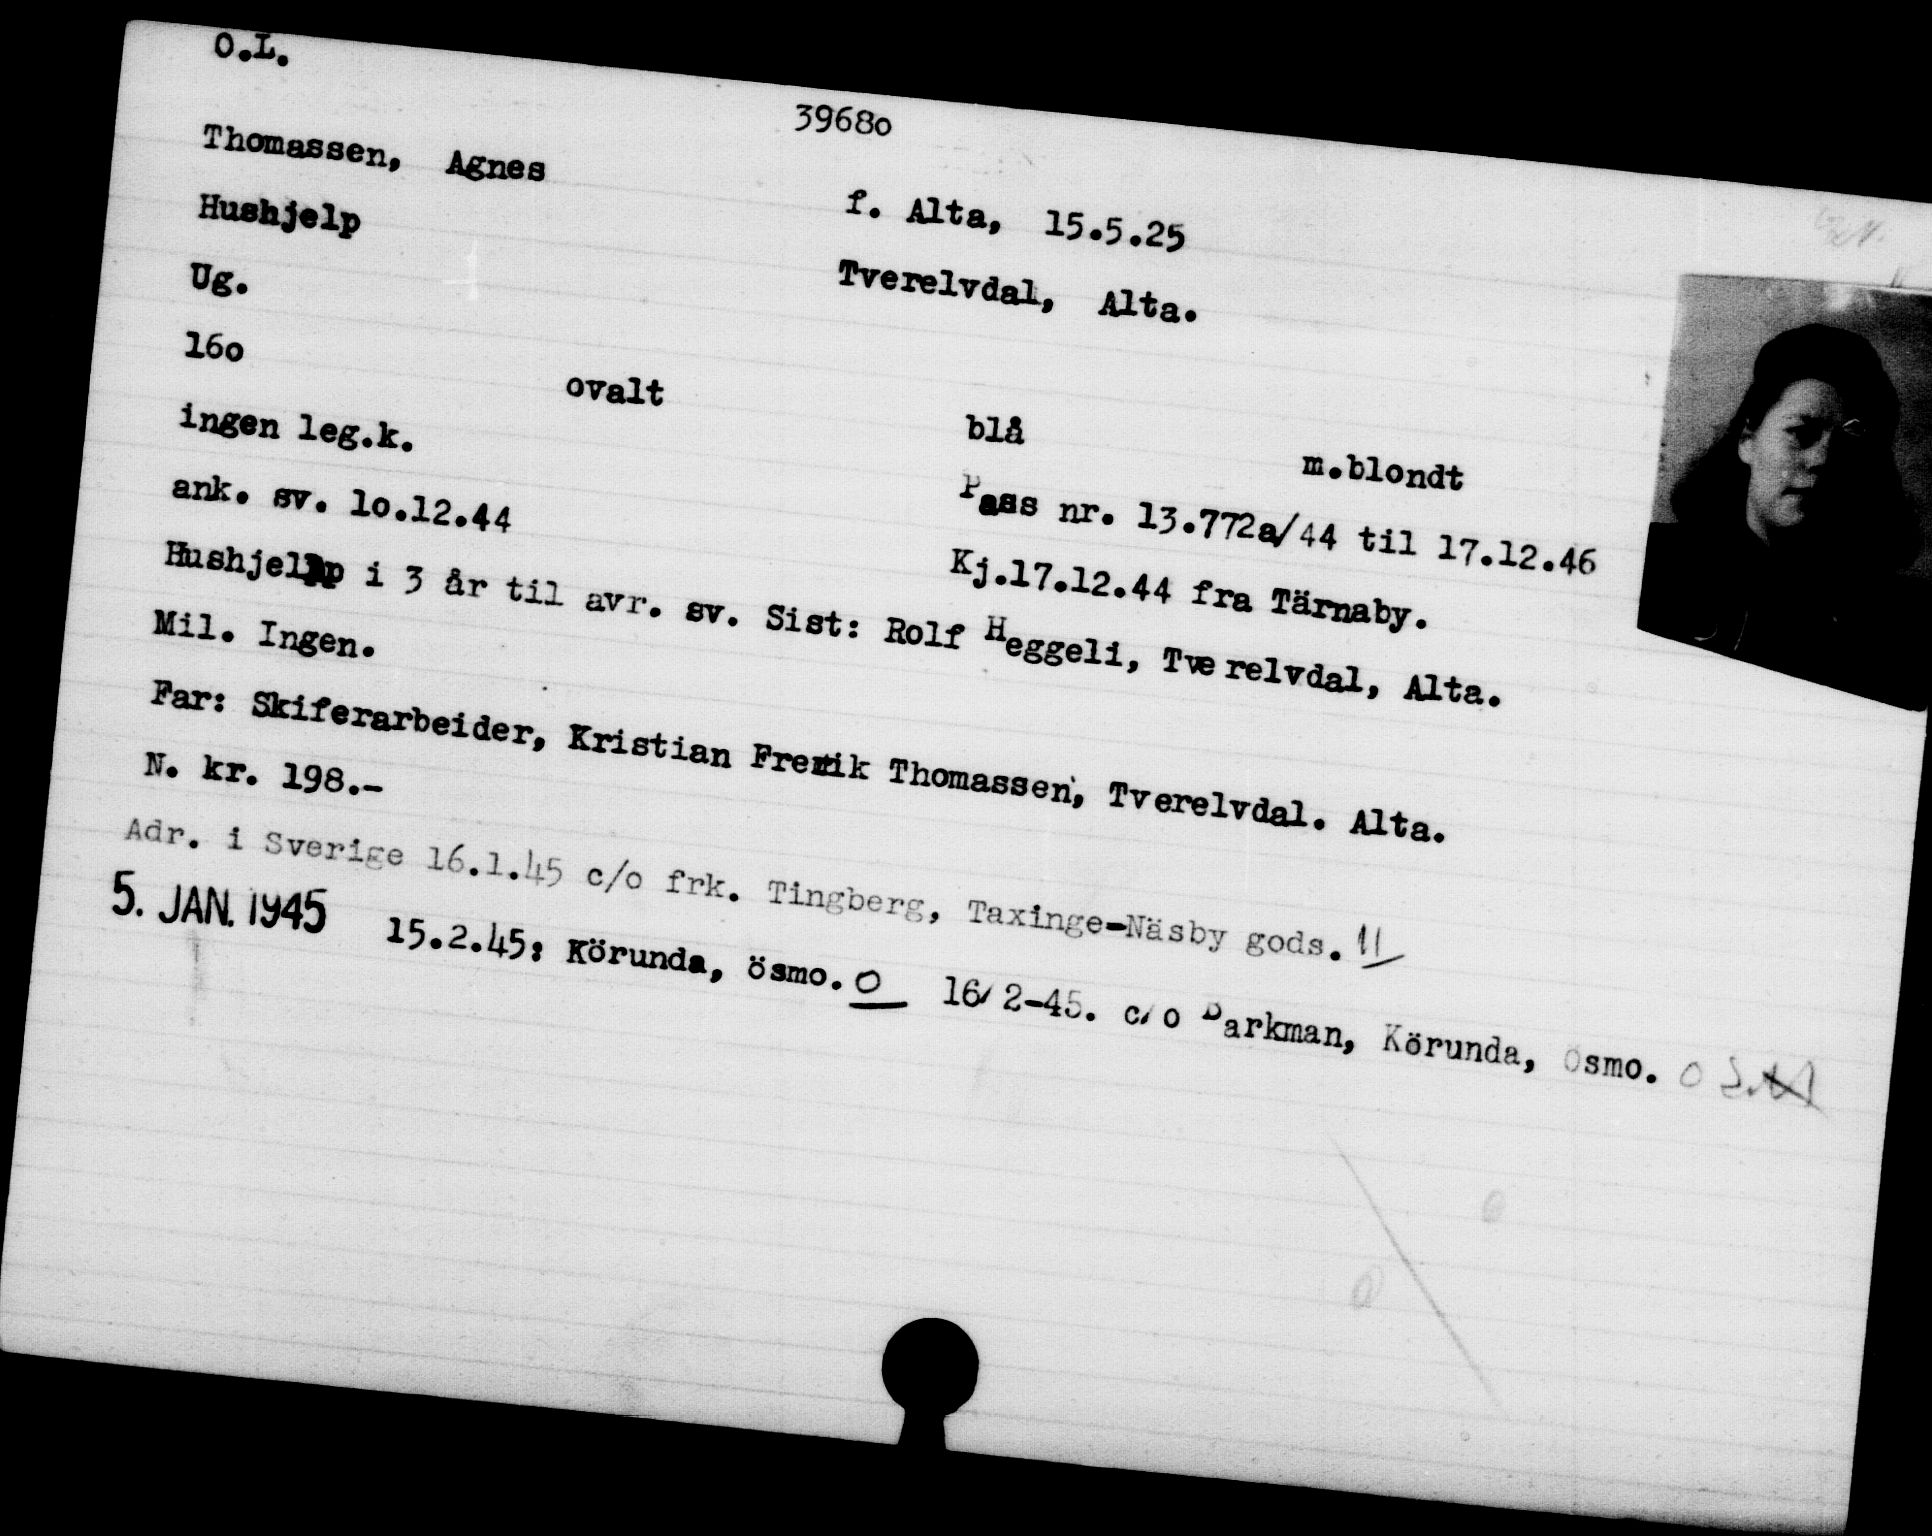 O.L.
3968o
Thomassen, Agnes
f. Alta, 15.5.25
Hushjelp
Tverelvdal, Alta.
Ug.
16o ovalt blå m.blondt
ingen leg.k. Pass nr. 13.772a/44 til 17.12.46
ank. sv. 1o.12.44 Kj.17.12.44 fra Tärnaby.
Hushjelp i 3 år til avr. sv. Sist: Rolf Heggeli, Tverelvdal, Alta.
Mil. Ingen.
Far: Skiferarbeider, Kristian Fredrik Thomassen, Tverelvdal. Alta.
N. kr. 198.-
Adr. i Sverige 16.1.45 c/o frk. Tingberg, Taxinge-Näsby gods. 11
5. JAN. 1945 15.2.45: Körunda, ösmo. O 16/2-45. c/o Barkman, Körunda, Ösmo. O